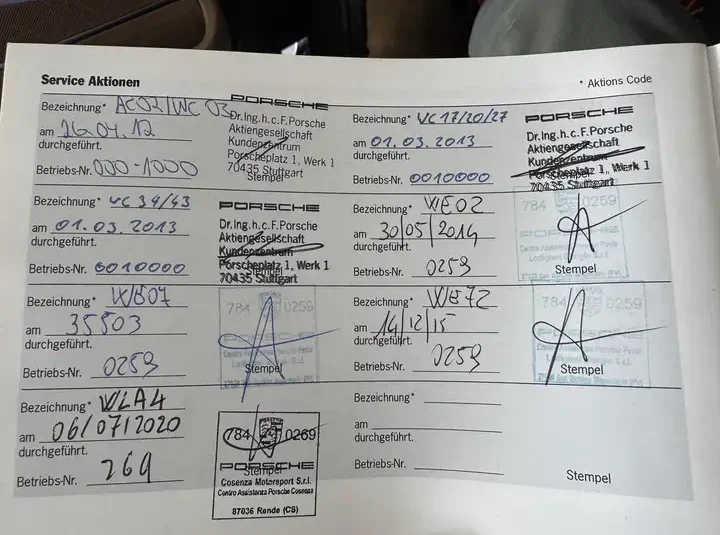 Service Aktionen
* Aktions Code
Bezeichnung* AC02/WC 03
am 26.04.12
durchgeführt.
Betriebs-Nr. 000-1000
PORSCHE
Dr.Ing.h.c.F.Porsche
Aktiengesellschaft
Kundenzentrum
Porscheplatz 1, Werk 1
70435 Stuttgart
Stempel
Bezeichnung* WC 17/20/27
am 01.03.2013
durchgeführt.
Betriebs-Nr. 0010000
PORSCHE
Dr.Ing.h.c.F.Porsche
Aktiengesellschaft
Kundenzentrum
Porscheplatz 1, Werk 1
70435 Stuttgart
Stempel
Bezeichnung* WC 34/43
am 01.03.2013
durchgeführt.
Betriebs-Nr. 0010000
PORSCHE
Dr.Ing.h.c.F.Porsche
Aktiengesellschaft
Kundenzentrum
Porscheplatz 1, Werk 1
70435 Stuttgart
Stempel
Bezeichnung* WE02
am 30/05/2014
durchgeführt.
Betriebs-Nr. 0259
784 0259
PORSCHE
Stempel
Bezeichnung* WE07
am 35503
durchgeführt.
Betriebs-Nr. 0259
784 0259
PORSCHE
Stempel
Bezeichnung* WE72
am 14/12/15
durchgeführt.
Betriebs-Nr. 0259
784 0259
PORSCHE
Stempel
Bezeichnung* WLA4
am 06/07/2020
durchgeführt.
Betriebs-Nr. 269
784 0269
PORSCHE
Stempel
Cosenza Motorsport S.r.l.
Centro Assistenza Porsche Cosenza
87036 Rende (CS)
Bezeichnung*
am
durchgeführt.
Betriebs-Nr.
Stempel